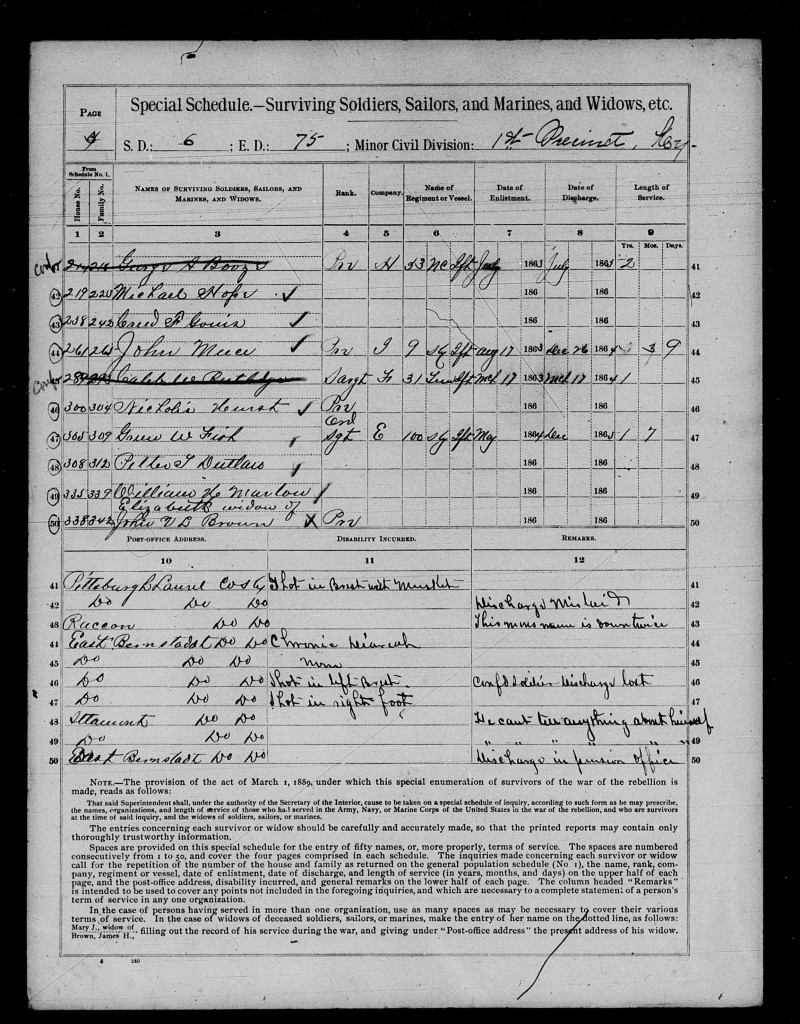 Page
4
Special Schedule.—Surviving Soldiers, Sailors, and Marines, and Widows, etc.
S. D.: 6 ; E. D.: 75 ; Minor Civil Division: 1st Precinct, Ky.
From Schedule No. 1.
House No.
Family No.
Names of Surviving Soldiers, Sailors, and Marines, and Widows.
Rank.
Company.
Name of Regiment or Vessel.
Date of Enlistment.
Date of Discharge.
Length of Service.
1 2 3 4 5 6 7 8 9
Yrs. Mos. Days.
Pvr H 33 NC Ift July 1863 July 1865 2 41
42 219 225 Michael Hops 186 186 42
43 238 242 186 186 43
44 261 265 John 9 Ky Ift Aug 17 186 Dec 26 186 3 9 44
Sargt F 31 Ift Mch 17 1863 Mch 17 1864 1 45
46 300 304 Nicholis Hurst Pvr 186 186 46
Ord
47 305 309 Green W Fish Sgt E 100 Ky Ift May 186 Dec 1865 1 7 47
48 308 312 Petter T Outlaw 186 186 48
49 335 339 William H Marlow 186 186 49
Elizabeth widow of
50 338 342 John V B Brown Pvr 186 186 50
Post-office Address.
Disability Incurred.
Remarks.
10 11 12
41 Pittsburgh Laurel Co Ky Shot in Brest with Musket 41
42 Do Do Do Discharge Mislaid 42
43 Raccon Do Do This mans name is down twice 43
44 East Bernstadt Do Do Chronic Diareah 44
45 Do Do Do None 45
46 Do Do Do Shot in left Brest Confd Soldier Discharge lost 46
47 Do Do Do Shot in right foot 47
48 Altamont Do Do He cant tell anything about himself 48
49 Do Do Do " " " " 49
50 East Bernstadt Do Do Discharge in pension office 50
Note.—The provision of the act of March 1, 1889, under which this special enumeration of survivors of the war of the rebellion is
made, reads as follows:
That said Superintendent shall, under the authority of the Secretary of the Interior, cause to be taken on a special schedule of inquiry, according to such form as he may prescribe,
the names, organizations, and length of service of those who had served in the Army, Navy, or Marine Corps of the United States in the war of the rebellion, and who are survivors
at the time of said inquiry, and the widows of soldiers, sailors, or marines.
The entries concerning each survivor or widow should be carefully and accurately made, so that the printed reports may contain only
thoroughly trustworthy information.
Spaces are provided on this special schedule for the entry of fifty names, or, more properly, terms of service. The spaces are numbered
consecutively from 1 to 50, and cover the four pages comprised in each schedule. The inquiries made concerning each survivor or widow
call for the repetition of the number of the house and family as returned on the general population schedule (No. 1), the name, rank, com-
pany, regiment or vessel, date of enlistment, date of discharge, and length of service (in years, months, and days) on the upper half of each
page, and the post-office address, disability incurred, and general remarks on the lower half of each page. The column headed "Remarks"
is intended to be used to cover any points not included in the foregoing inquiries, and which are necessary to a complete statement of a person's
term of service in any one organization.
In the case of persons having served in more than one organization, use as many spaces as may be necessary to cover their various
terms of service. In the case of widows of deceased soldiers, sailors, or marines, make the entry of her name on the dotted line, as follows:
Mary J., widow of
Brown, James H., filling out the record of his service during the war, and giving under "Post-office address" the present address of his widow.
4 240